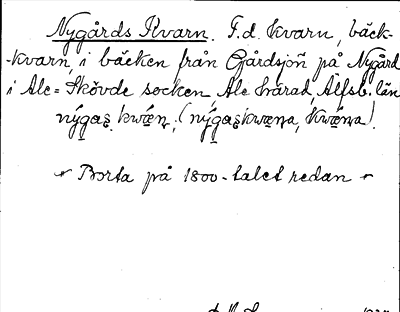 Nygårds Kvarn. F.d. kvarn, bäck-
-kvarn, i bäcken från Gårdsjön på Nygård
i Ale-Skövde socken, Ale härad, Älfsb. län
nýgaʂ kwæ̨n, (nýgaʂkwæ̨ɳa, kwæ̨ɳa).
Borta på 1800-talet redan